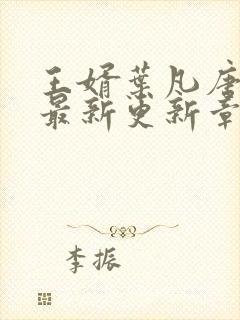 王婿葉凡唐
最新更新章
李振